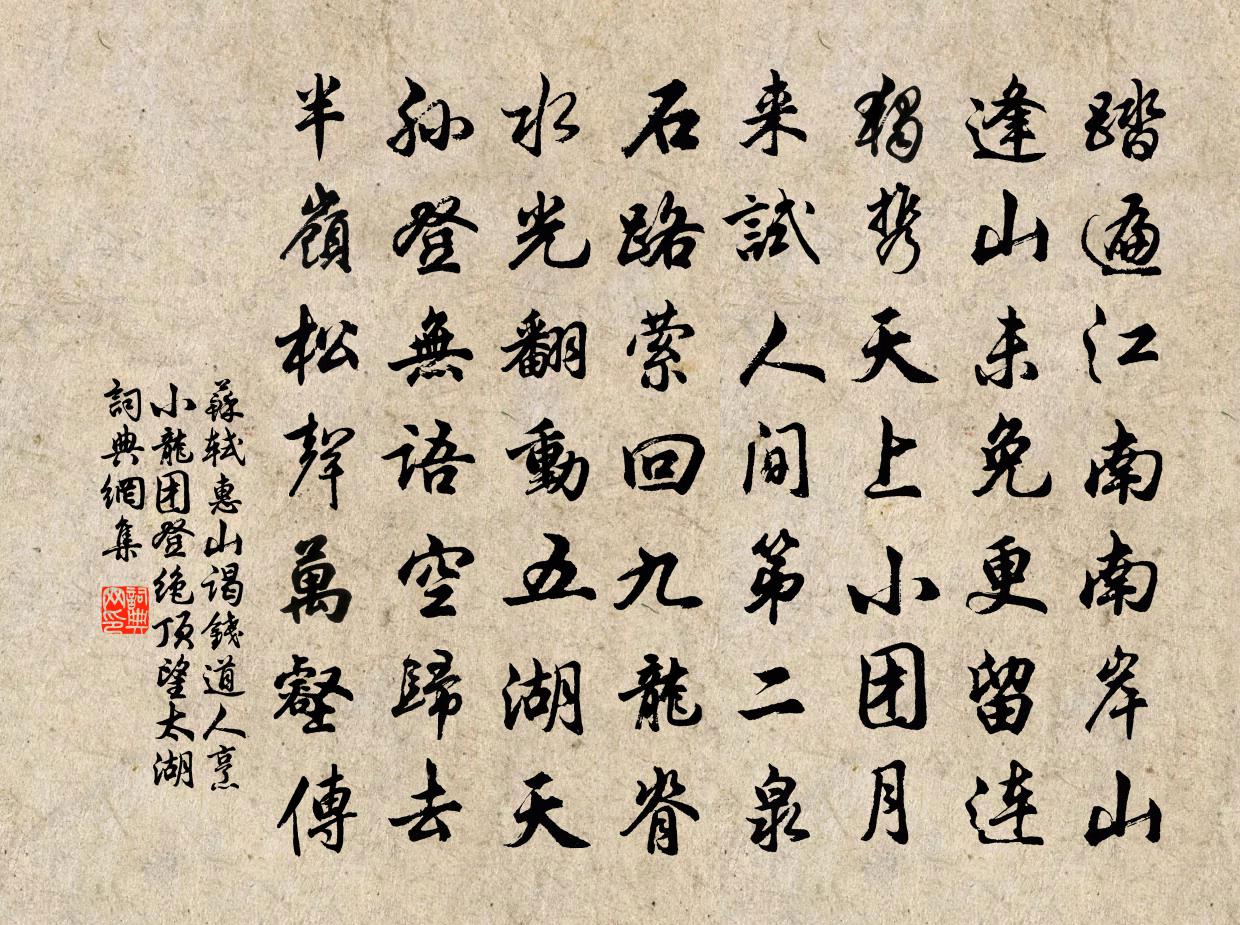 踏遍江南南岸山
逢山未免更留連
獨携天上小团月
来試人间第二泉
石路萦回九龍脊
水光翻動五湖天
孙登無語空歸去
半嶺松聲萬壑傳
蘇軾惠山谒錢道人烹
小龍团登绝顶望太湖
詞典網集
詞典
网印